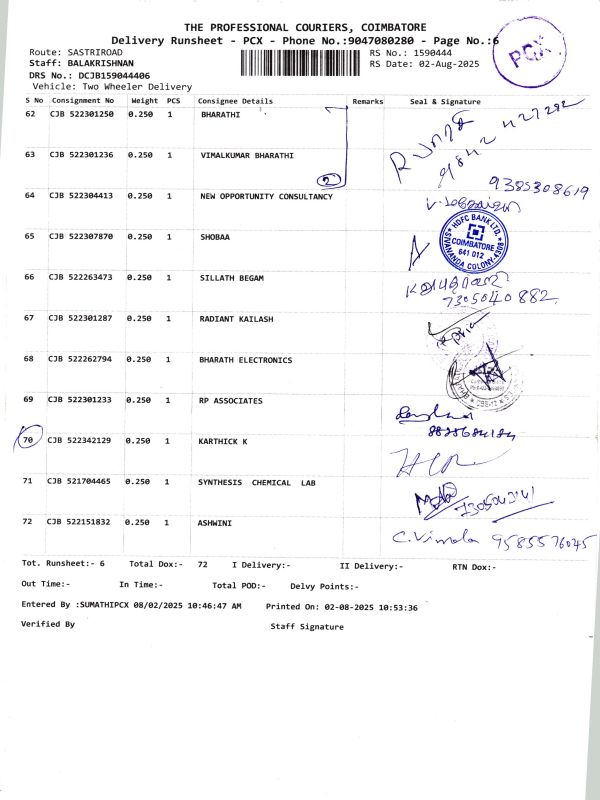 THE PROFESSIONAL COURIERS, COIMBATORE
Delivery Runsheet - PCX - Phone No.:9047080280 - Page No.:6
PCX
Route: SASTRIROAD
RS No.: 1590444
Staff: BALAKRISHNAN
RS Date: 02-Aug-2025
DRS No.: DCJB159044406
Vehicle: Two Wheeler Delivery
S No Consignment No Weight PCS Consignee Details Remarks Seal & Signature
62 CJB 522301250 0.250 1 BHARATHI
9842 427282
63 CJB 522301236 0.250 1 VIMALKUMAR BHARATHI
2
9385308619
64 CJB 522304413 0.250 1 NEW OPPORTUNITY CONSULTANCY
65 CJB 522307870 0.250 1 SHOBAA
HDFC BANK LTD.
COIMBATORE
641 012
SIVANANDA COLONY
66 CJB 522263473 0.250 1 SILLATH BEGAM
7305040 882
67 CJB 522301287 0.250 1 RADIANT KAILASH
68 CJB 522262794 0.250 1 BHARATH ELECTRONICS
69 CJB 522301233 0.250 1 RP ASSOCIATES
70 CJB 522342129 0.250 1 KARTHICK K
71 CJB 521704465 0.250 1 SYNTHESIS CHEMICAL LAB
72 CJB 522151832 0.250 1 ASHWINI
C. Vimala 9585576045
Tot. Runsheet:- 6 Total Dox:- 72 I Delivery:- II Delivery:- RTN Dox:-
Out Time:- In Time:- Total POD:- Delvy Points:-
Entered By :SUMATHIPCX 08/02/2025 10:46:47 AM Printed On: 02-08-2025 10:53:36
Verified By Staff Signature